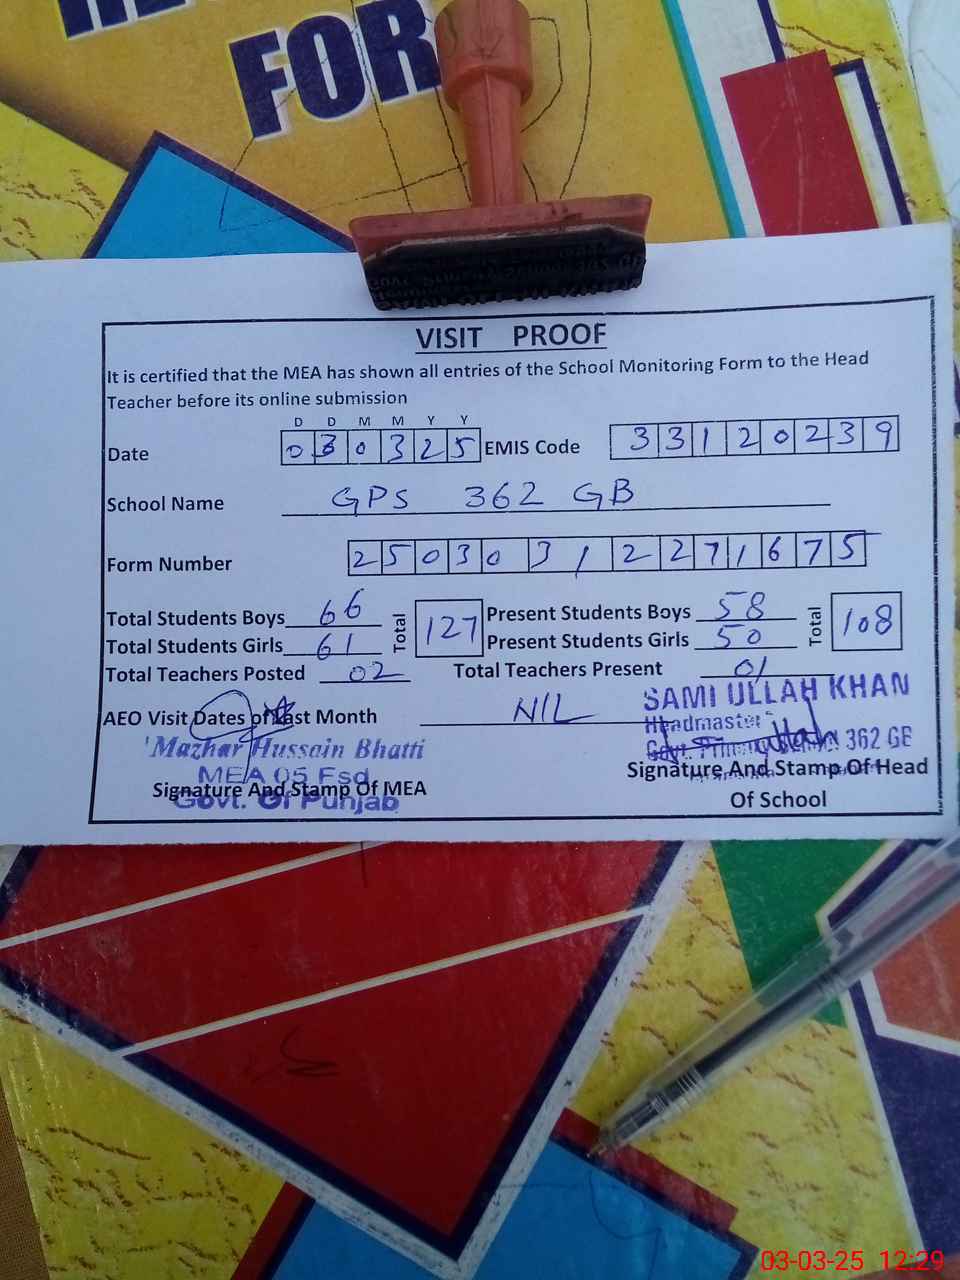 FOR
VISIT PROOF
It is certified that the MEA has shown all entries of the School Monitoring Form to the Head
Teacher before its online submission
D D M M Y Y
Date 030325 EMIS Code 33120239
School Name GPS 362 GB
Form Number 25030312271675
Total Students Boys 66 Total 127 Present Students Boys 58 Total 108
Total Students Girls 61 Present Students Girls 50
Total Teachers Posted 02 Total Teachers Present 01
AEO Visit Dates of Last Month NIL
SAMI ULLAH KHAN
Headmaster
Govt. Primary School 362 GB
Mazhar Hussain Bhatti
MEA 05 Fsd
Govt. Of Punjab
Signature And Stamp Of MEA
Signature And Stamp Of Head
Of School
03-03-25 12:29